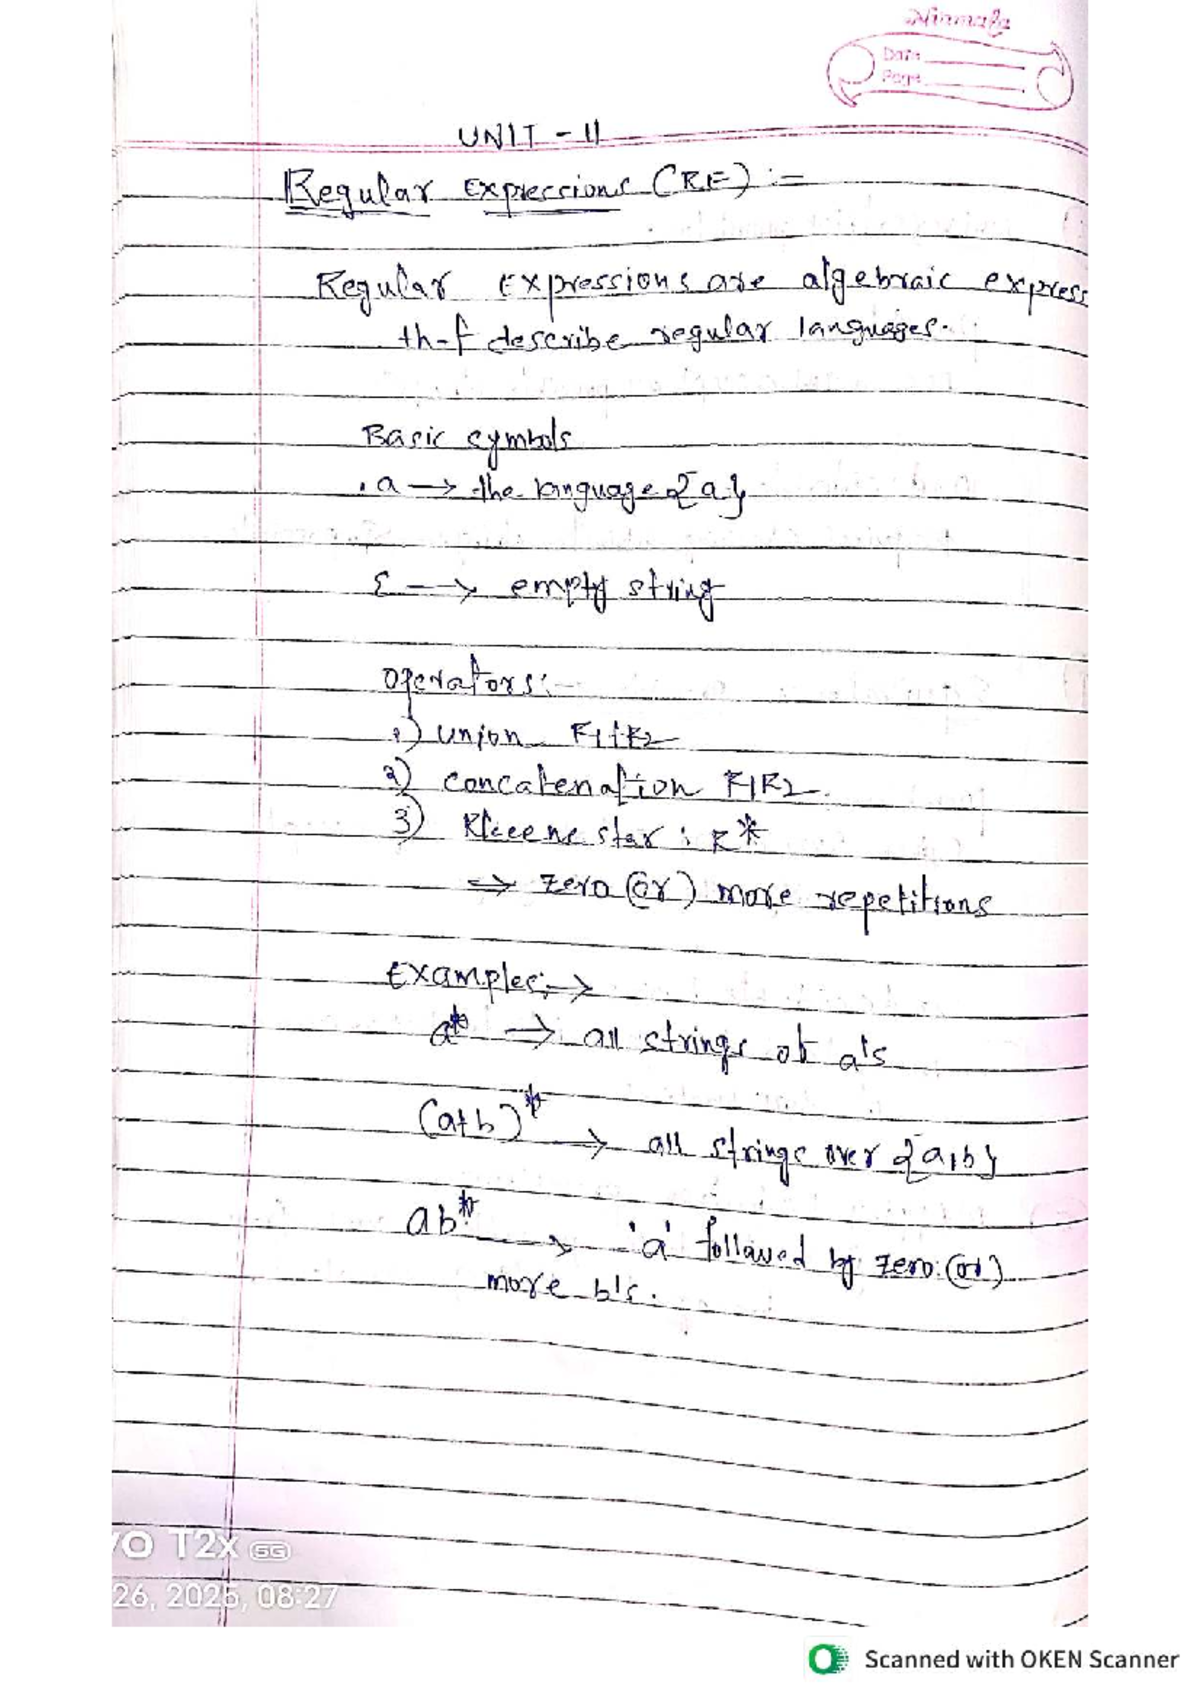 Nirmala
Date
Page
UNIT - II
Regular Expressions (RE) :-
Regular Expressions are algebraic express
th-t describe regular languages.
Basic symbols
. a → the language {a}
ε → empty string
operators:-
1) union R1+R2
2) concatenation R1R2.
3) Kleene star : R*
⇒ zero (or) more repetitions
Examples:→
a* → all strings of a's
(a+b)* → all strings over {a,b}
ab* → 'a' followed by zero (or)
more b's.
VO T2x 5G
26, 2025, 08:27
Scanned with OKEN Scanner